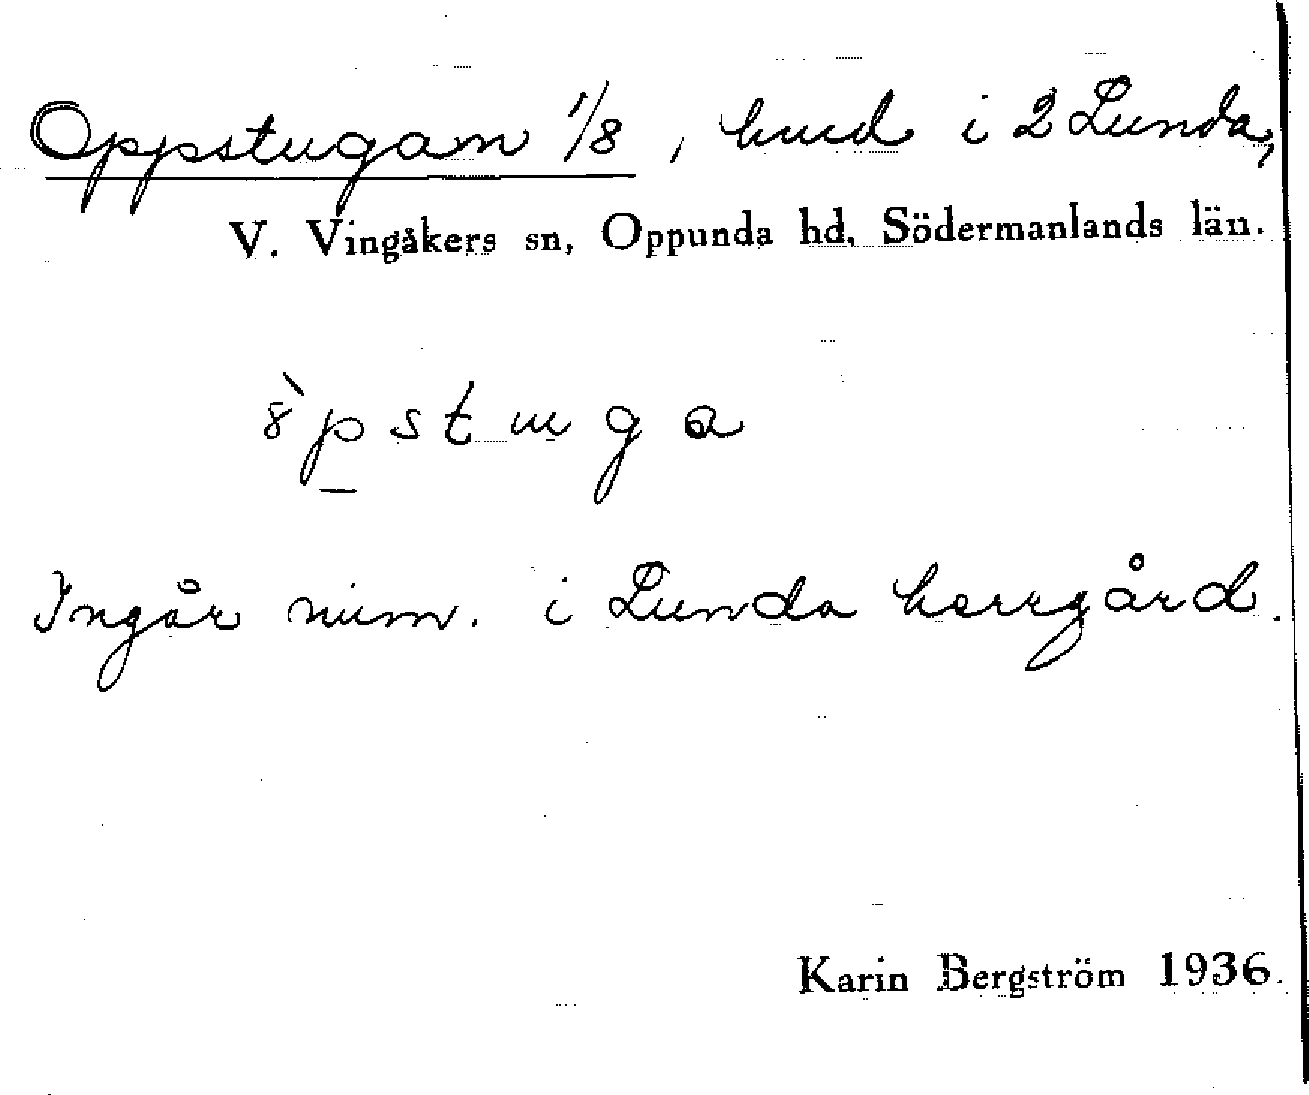 Oppstugan 1/8, hmd i 2 Lunda,
V. Vingåkers sn, Oppunda hd, Södermanlands län.
Ingår num. i Lunda herrgård.
Karin Bergström 1936.